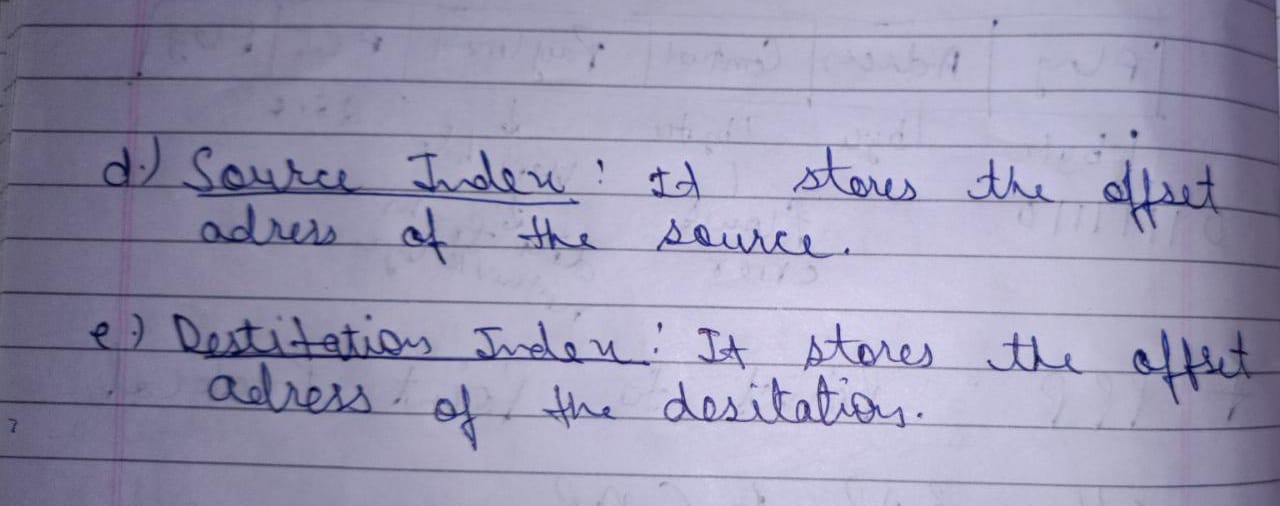 d.) Source Index : It stores the offset
adress of the source.
e.) Destitation Index : It stores the offset
adress of the desitation.